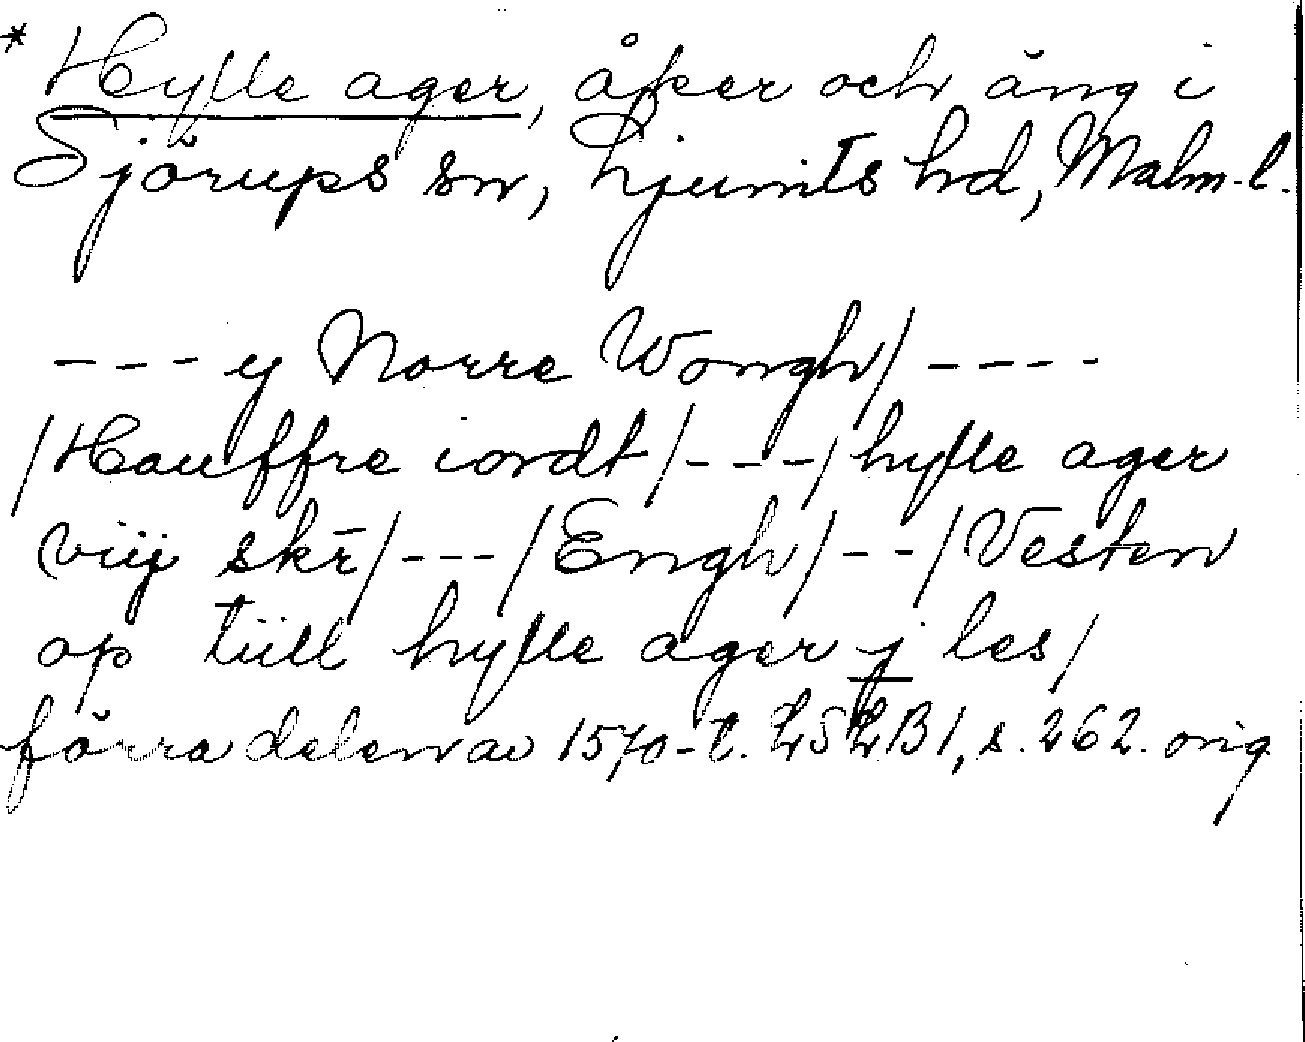 * Hylle ager, åker och äng i
Sjörups sn, Ljunits hd, Malm. l.
--- y Norre Wongh/ ----
/Hauffre iordt/---/hylle ager
viij skr̄/---/Engh/--/Vesten
op tiill hylle ager j les/
förra delen av 1570-t. LSLB1, s. 262. orig.